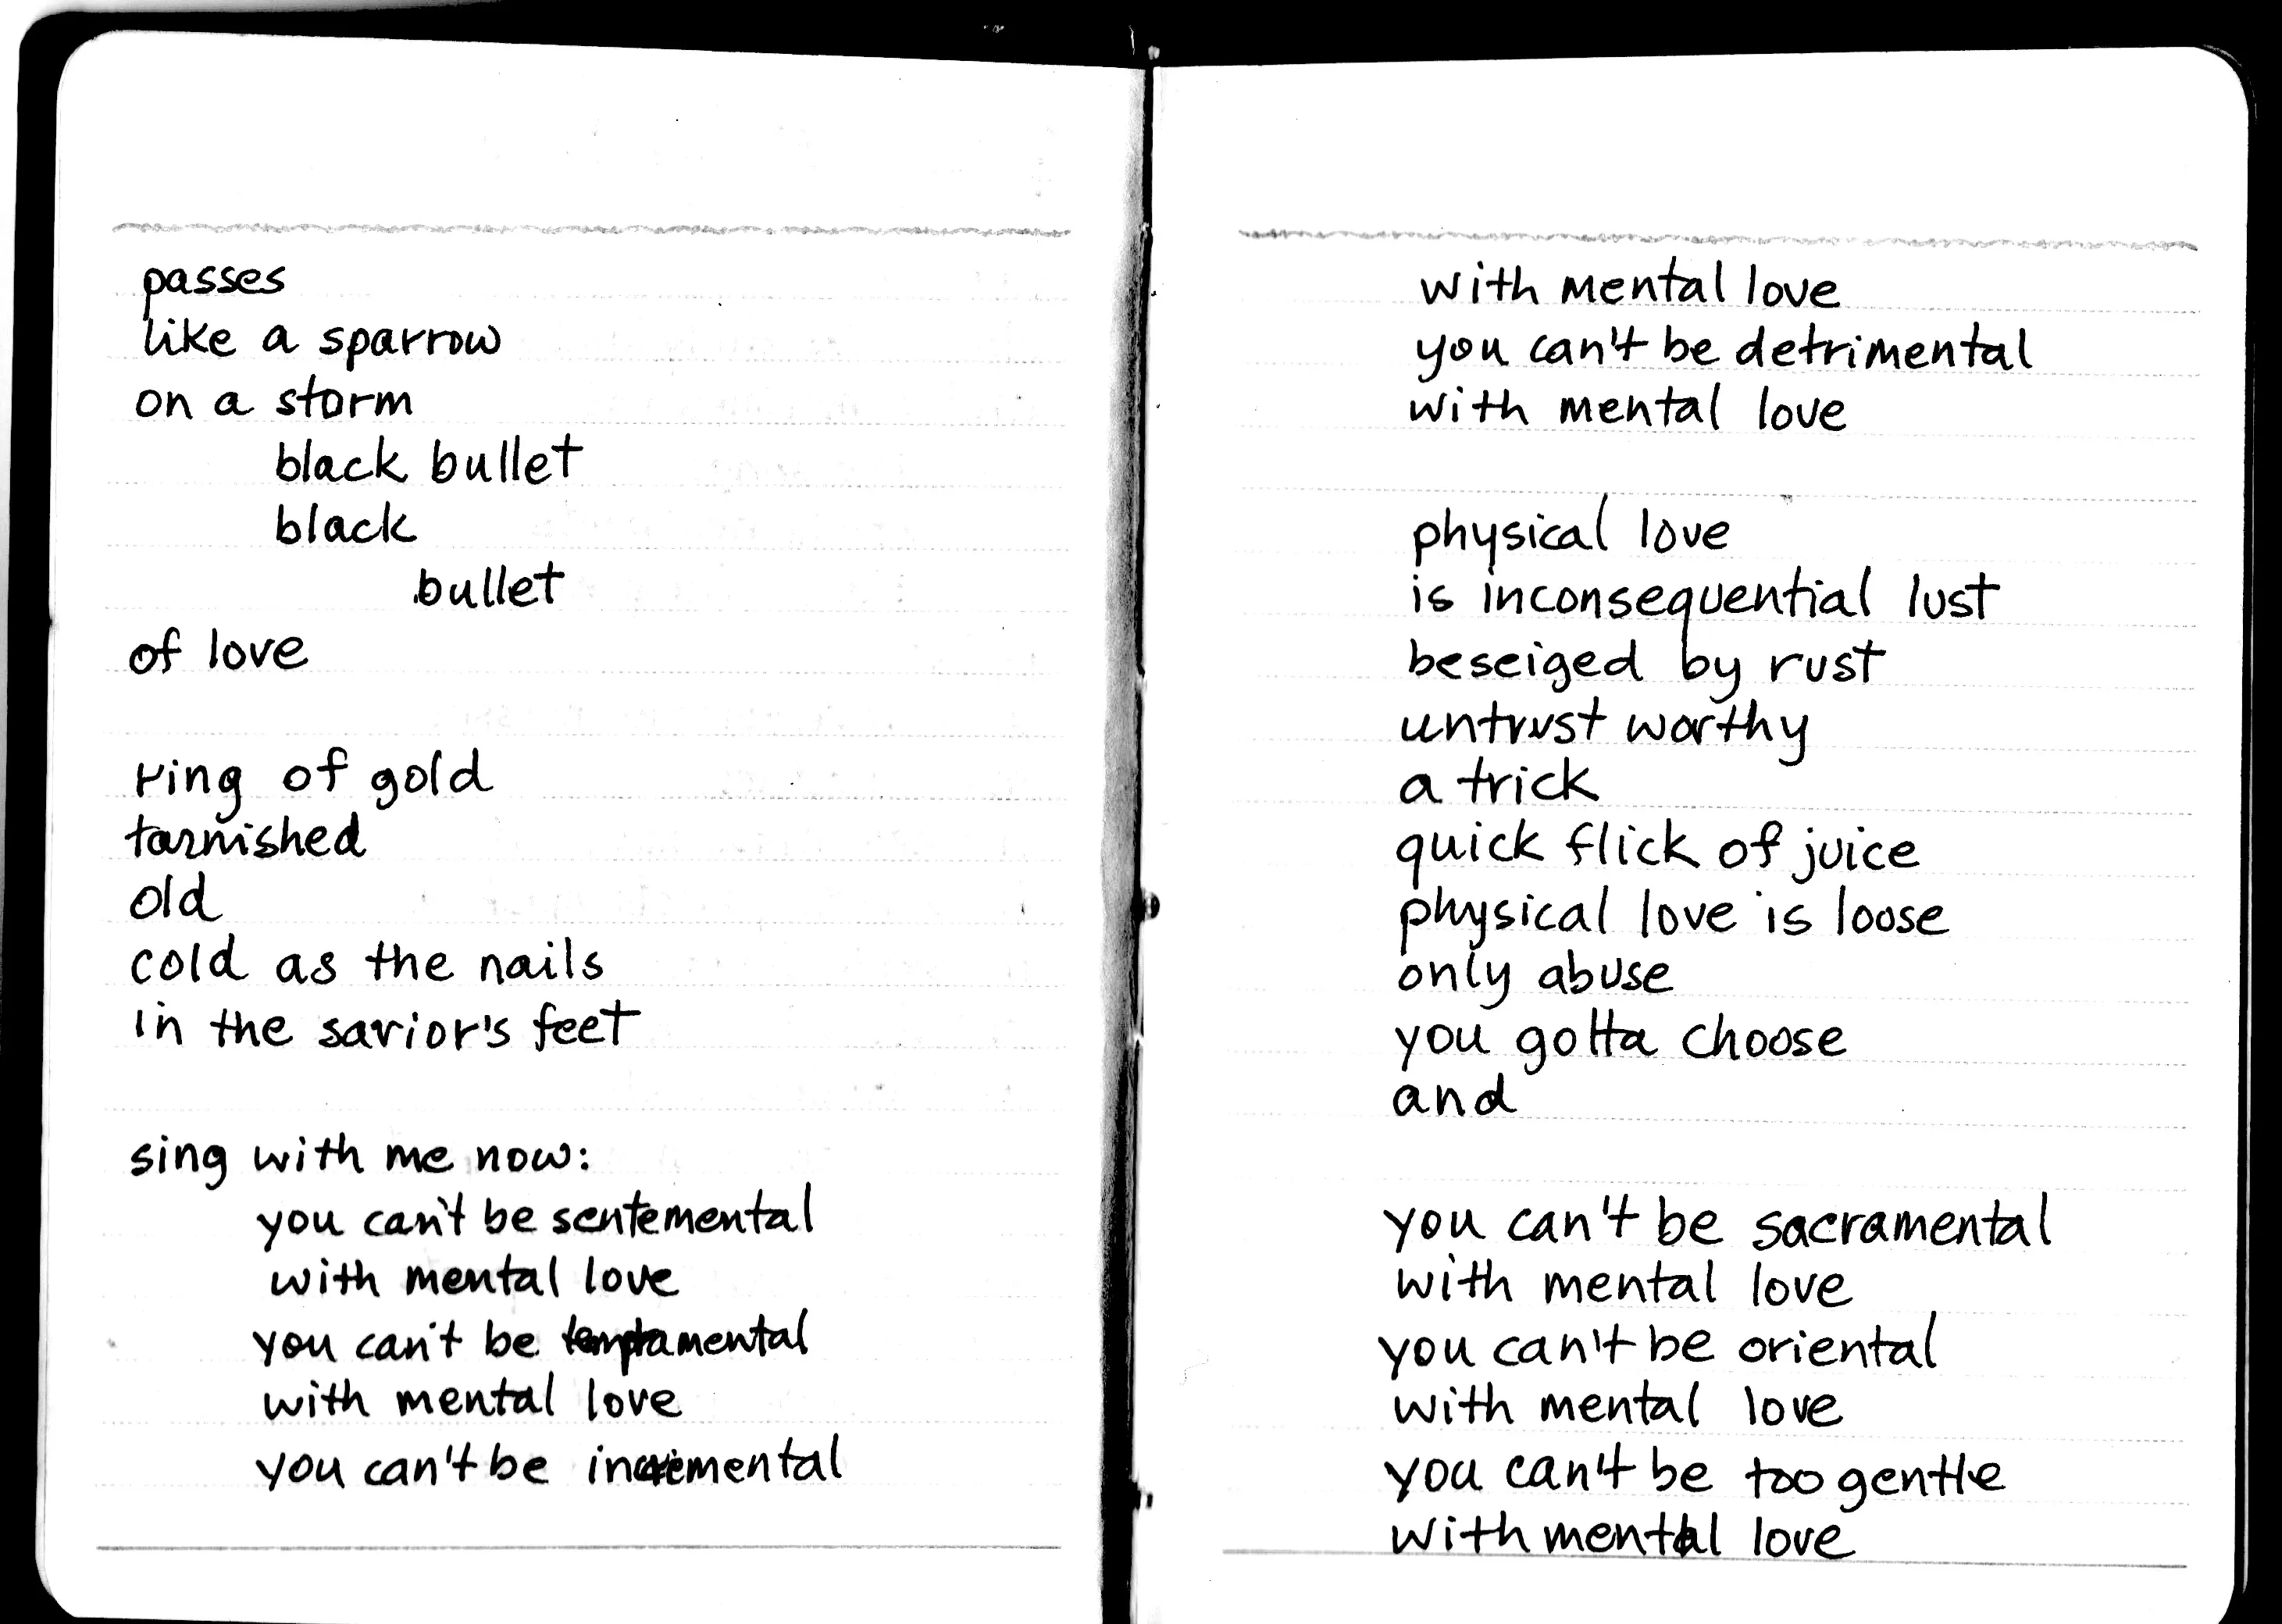 passes
like a sparrow
on a storm
black bullet
black
bullet
of love
ring of gold
tarnished
old
cold as the nails
in the savior's feet
sing with me now:
you can't be sentemental
with mental love
you can't be temptamental
with mental love
you can't be incremental
with mental love
you can't be detrimental
with mental love
physical love
is inconsequential lust
beseiged by rust
untrust worthy
a trick
quick flick of juice
physical love is loose
only abuse
you gotta choose
and
you can't be sacramental
with mental love
you can't be oriental
with mental love
you can't be too gentle
with mental love